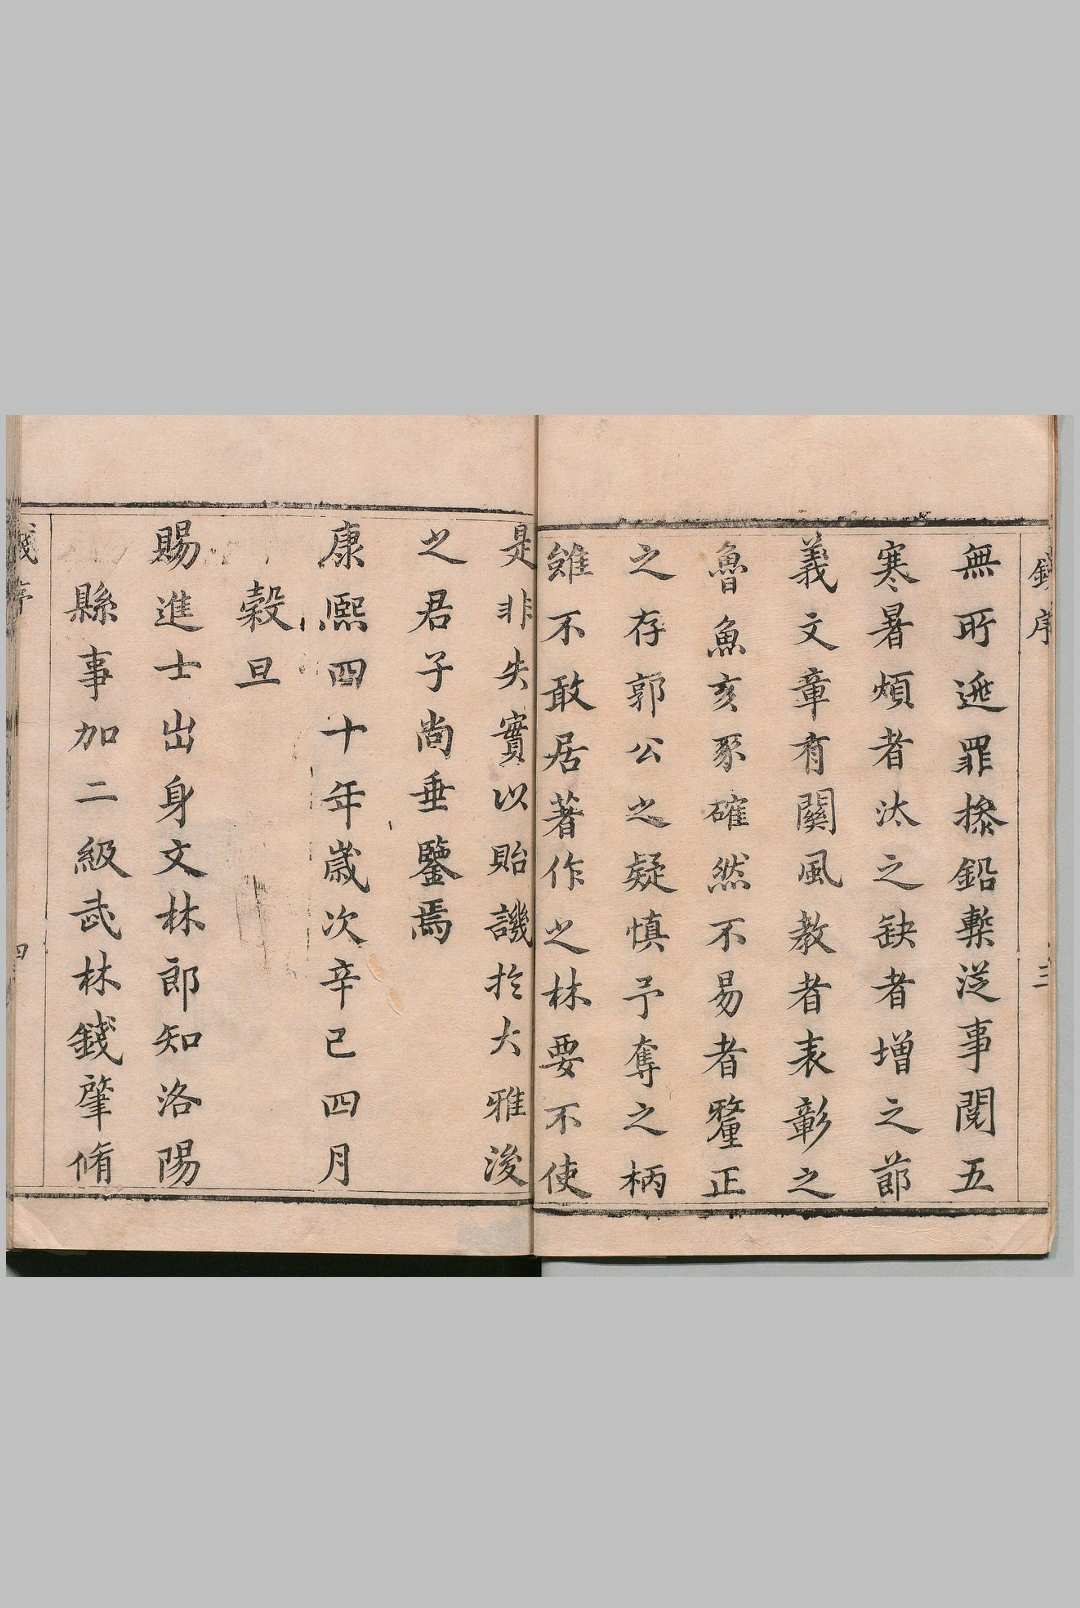 錢序
三
無所逃罪搽鉛槧從事閱五
寒暑煩者汰之缺者增之節
義文章有關風教者表彰之
魯魚亥豕確然不易者釐正
之存郭公之疑慎予奪之柄
雖不敢居著作之林要不使
是非失實以貽譏於大雅後
之君子尚垂鑒焉
康熙四十年歲次辛巳四月
穀旦
賜進士出身文林郎知洛陽
縣事加二級武林錢肇脩
錢序
四